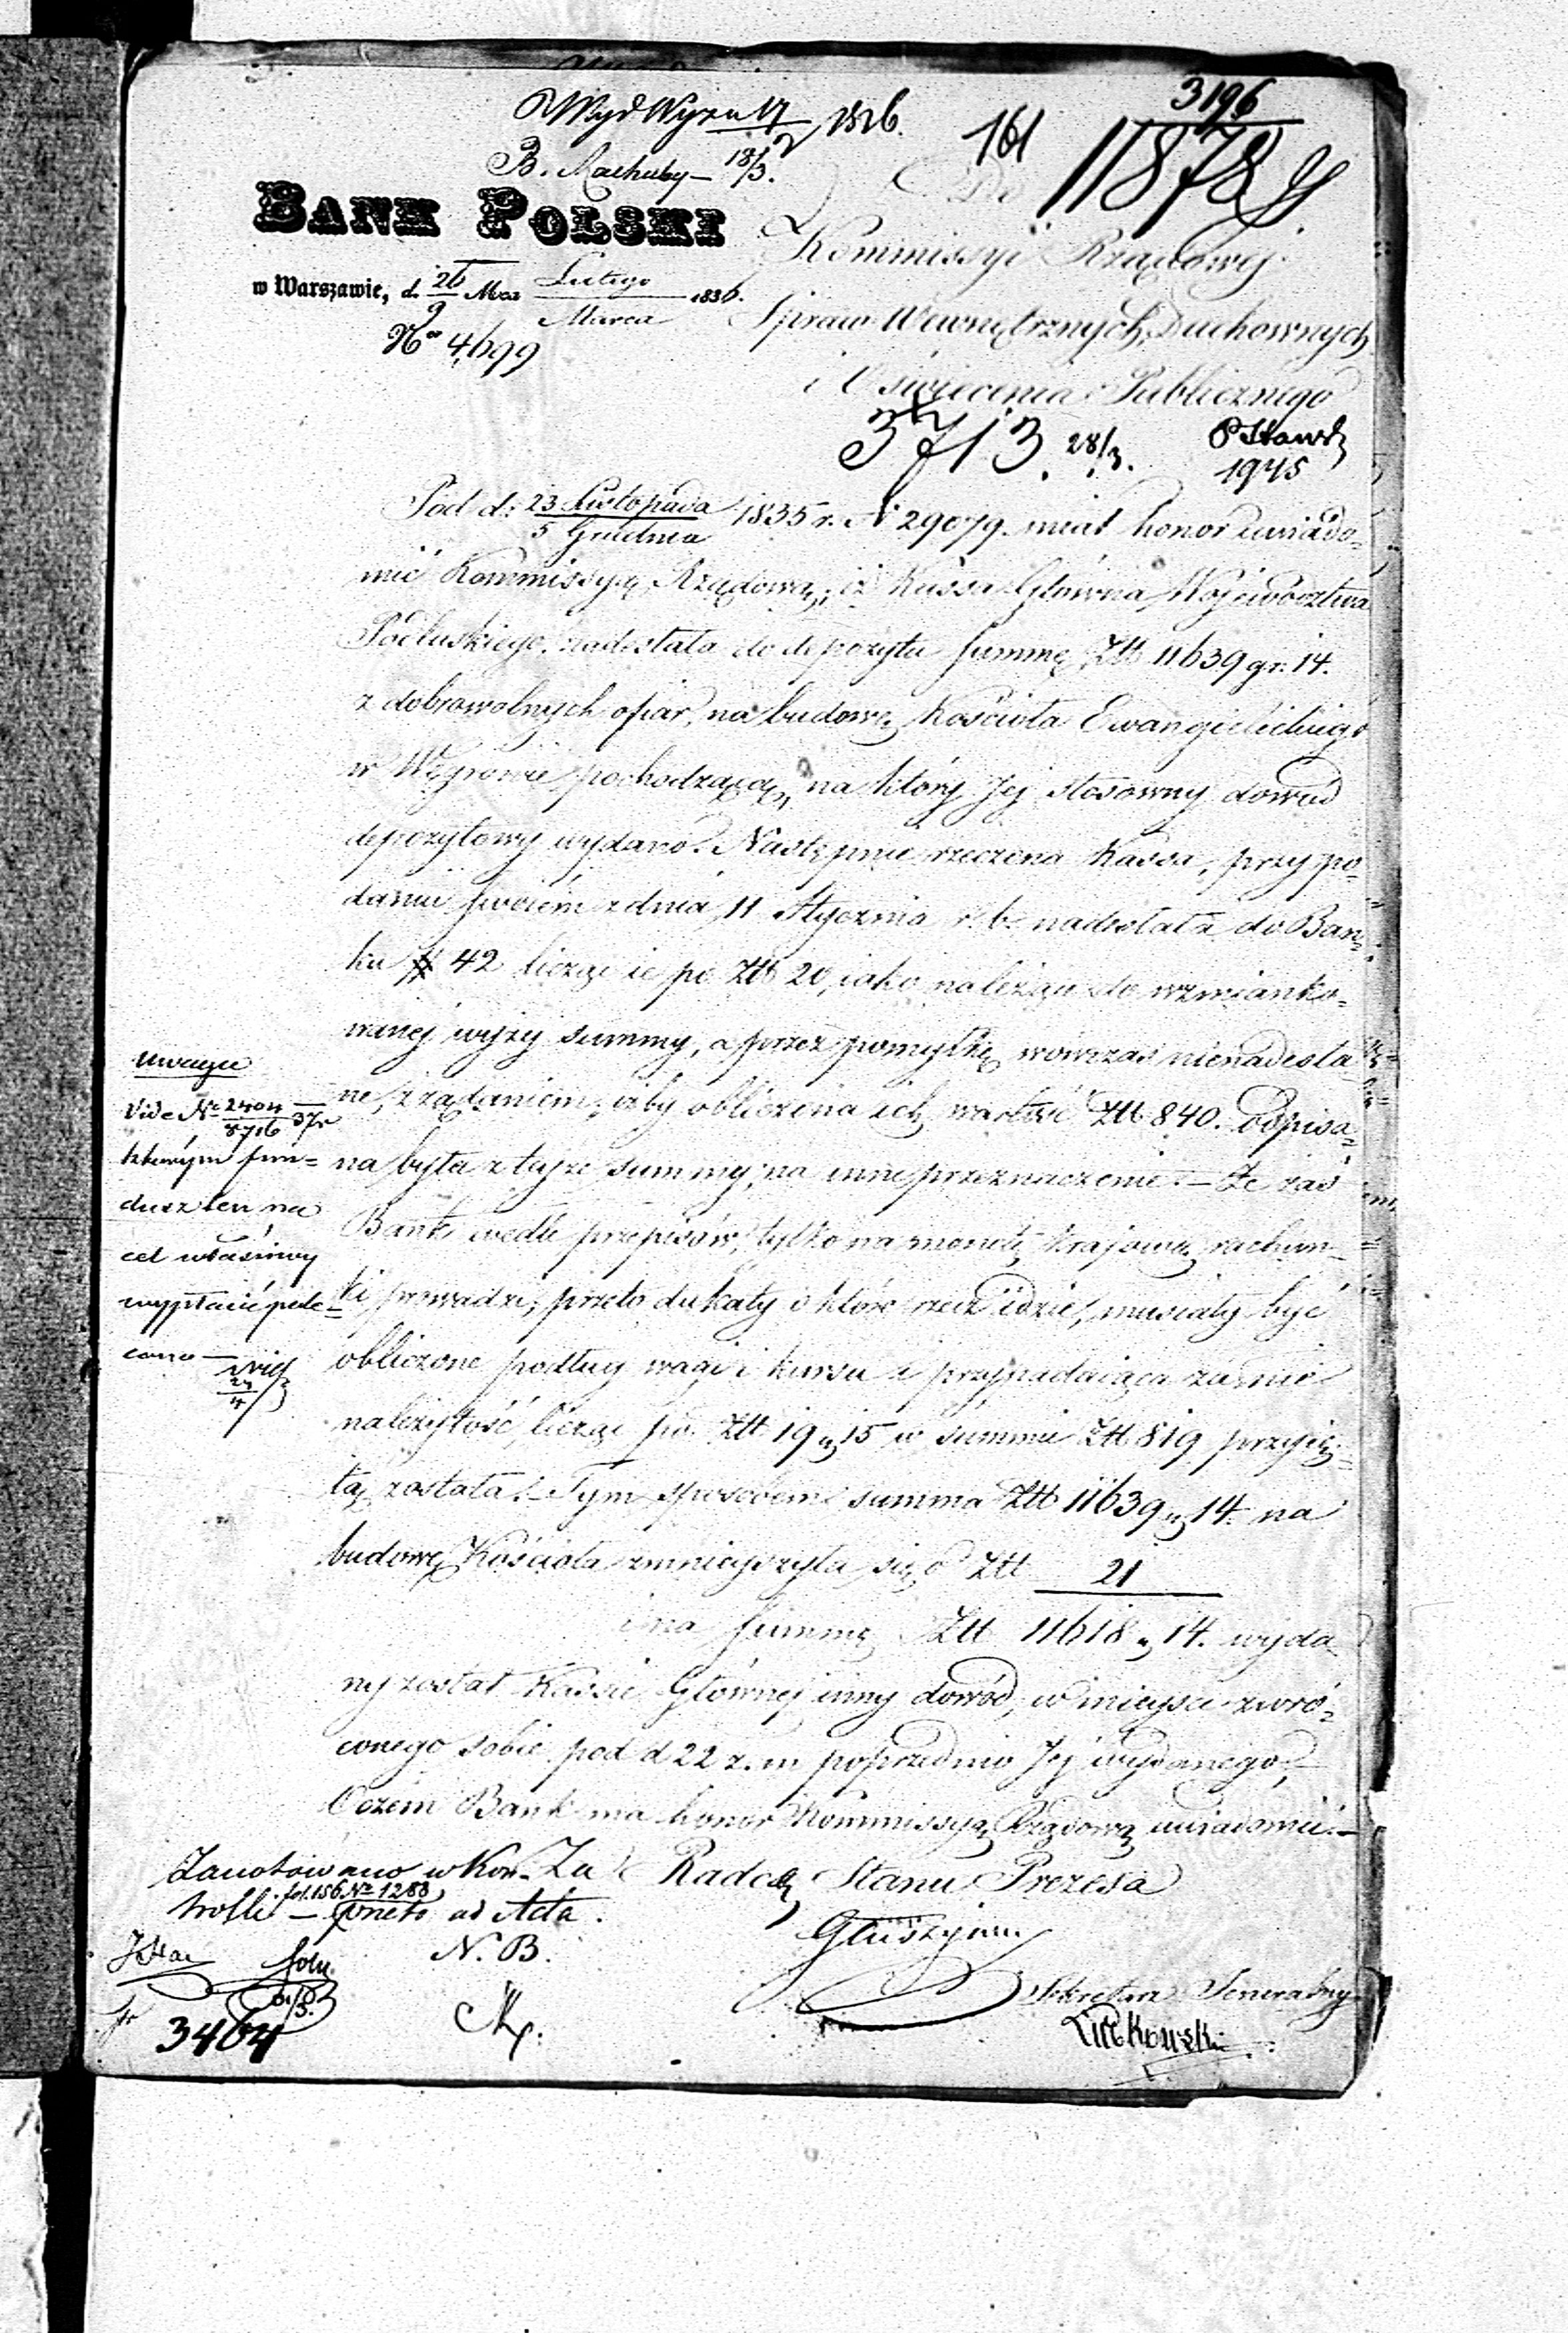 3196
161
11878
18/3.
BANK POLSKI
Do
Kommissyi Rządowej
w Warszawie, d. 26/9 Lutego/Marca 1836.
Spraw Wewnętrznych, Duchownych
No 4699
i Oświecenia Publicznego
3713. 28/3.
1945
Pod d: 23 Listopada/5 Grudnia 1835 r. N 29079. miał honor uwiado-
mić Kommissyą Rządową, iż Kassa Główna Województwa
Podlaskiego, nadesłała do depozytu summę Ztt 11639 gr. 14.
z dobrowolnych ofiar, na budowę Kościoła Ewangielickiego
w Węgrowie pochodzącą, na który Jej stosowny dowód
depozytowy wydano. Następnie rzeczona Kassa, przy po-
daniu swoiém z dnia 11 Stycznia r. b. nadesłała do Ban-
ku # 42 licząc ie po Ztt 20, iako należące do wzmianko-
wanej wyżej summy, a przez pomyłkę wówczas nienadesła
ne, z żądaniem, iżby obliczona ich wartość Ztt 840. odpisa-
na była z tejże summy, na inne przeznaczenie. — Że zaś
Bank wedle przepisów, tylko na monetę krajową rachun-
ki prowadzi, przeto dukaty o które rzecz idzie, musiały być
obliczone podług wagi i kursu i przypadaiąca za nie
należytość, licząc po Ztt 19 „ 15 w summie Ztt 819 przyię-
tą została. — Tym sposobem summa Ztt 11639 „ 14 na
budowę Kościoła zmnieyszyła się o Ztt 21
i na summę Ztt 11618 „ 14. wyda
ny został Kassie Głównej inny dowód, w mieysce zwró-
conego sobie pod d 22 z. m poprzednio Jej wydanego.—
O czém Bank ma honor Kommissyą Rządową uwiadomić.—
uwaga
Vide No 2404/8716 37r
którym fun-
dusz ten na
cel właściwy
wypłacić pole-
cono —
Za Radcę Stanu Prezesa
Sekretarz Jeneralny
Zanotowano w Kon-
trolli fol. 156 No 1288
ad Acta.
N. B.
3464